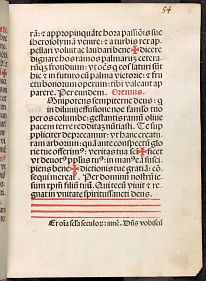 54
rā: ⁊ appropinquāte hora passiōis sue
iherosolymā venire: ⁊ a turbis rex ap
pellari voluit ac laudari bene✠dicere
dignare hos ramos palmarū ⁊ cetera-
rū frondium: vt oēs q̄ eos laturi sūt
hic ⁊ in futuro cū palma victorie: ⁊ fru
ctu bonorum operum: tibi valeant ap
parere. Per eundem. Oremus.
Omnipotens sempiterne deus: q
in diluui effusione noe famulo tuo
per os columbe: gestantis ramū oliue
pacem terre redditā nūtiasti. Te sup
plices deprecamur: vt hanc creatu-
ram arborum: quā ante conspectū glo
rie tue offerimꝰ: veritas tua scī✠ficet
vt deuotꝰ pplus tuꝰ: in manꝰ eā susci
piens bene✠dictionis tue gratiā: cō-
sequi mereat. Per dominū nostrū ie-
sum xp̄m filiū tuū. Qui tecū viuit ⁊ re
gnat in vnitate spiritussancti deus.
Per oīa secla seculor: amē. Dn̄s vobiscū